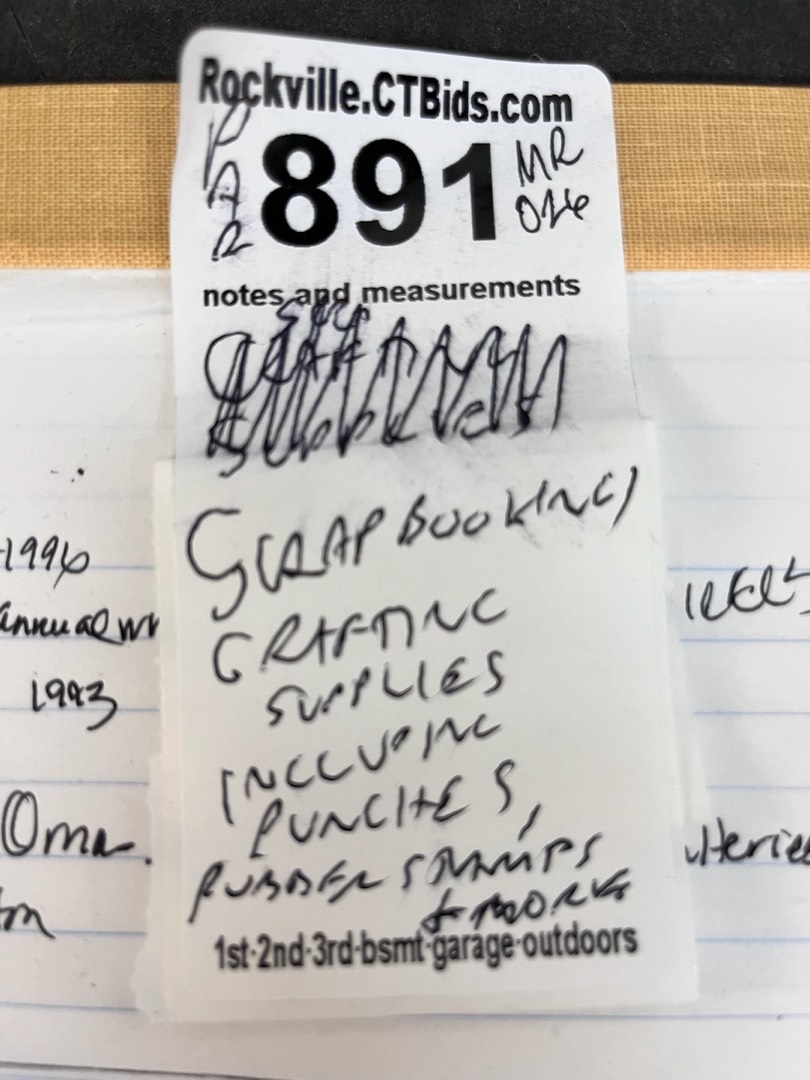 Rockville.CTBids.com
PAR 891 MR 026
notes and measurements
SCRAPBOOKING
CRAFTING
SUPPLIES
INCLUDING
PUNCHES,
RUBBER STAMPS
& MORE
1st-2nd-3rd-bsmt-garage-outdoors
1996
annual
1993
Oma.